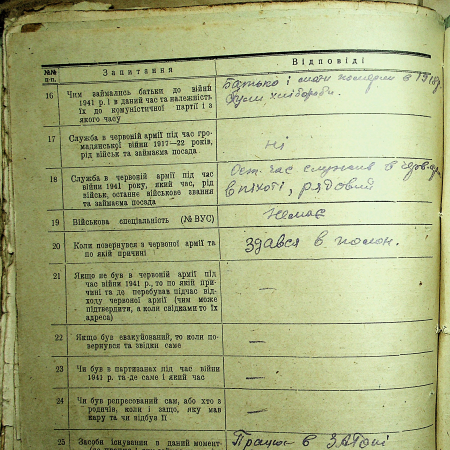 №№ п.п.
Запитання
Відповіді
16
Чим займались батьки до війни
1941 р. і в даний час та належність
їх до комуністичної партії і з
якого часу
Батько і мати померли в
були хлібороби.
17
Служба в червоній армії під час гро-
мадянської війни 1917—22 років,
рід військ та займаєма посада
Ні
18
Служба в червоній армії під час
війни 1941 року, який час, рід
військ, останнє військове звання
та займаєма посада
Ост. час служив в
в піхоті, рядовий
19
Військова спеціальність (№ ВУС)
Немає
20
Коли повернувся з червоної армії та
по якій причині
Здався в полон.
21
Якщо не був в червоній армії під
час війни 1941 р., то по якій при-
чині та де перебував підчас від-
ходу червоної армії (чим може
підтвердити, а коли свідками то їх
адреса)
—
22
Якщо був евакуйований, то коли по-
вернувся та звідки саме
—
23
Чи був в партизанах під час війни
1941 р. та де саме і який час
—
24
Чи був репресований сам, або хто з
родичів, коли і защо, яку мав
кару та чи відбув її
—
25
Засоби існування в даний момент
Працюю в